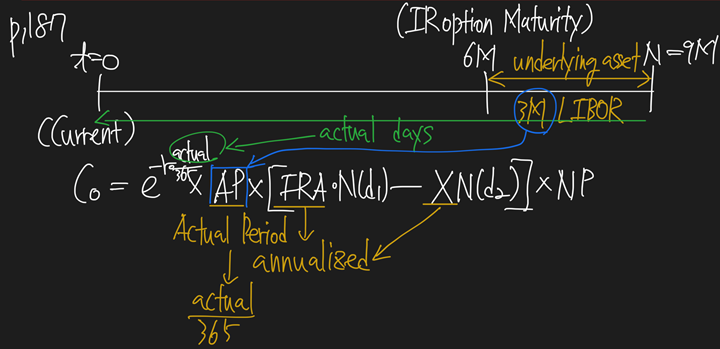 p.187
(IR option Maturity)
t=0
6M
underlying asset
N=9M
3M LIBOR
(Current)
actual days
C₀ = e^(-r×actual/365) × AP × [IRA·N(d₁) − XN(d₂)] × NP
Actual Period
annualized
actual
365